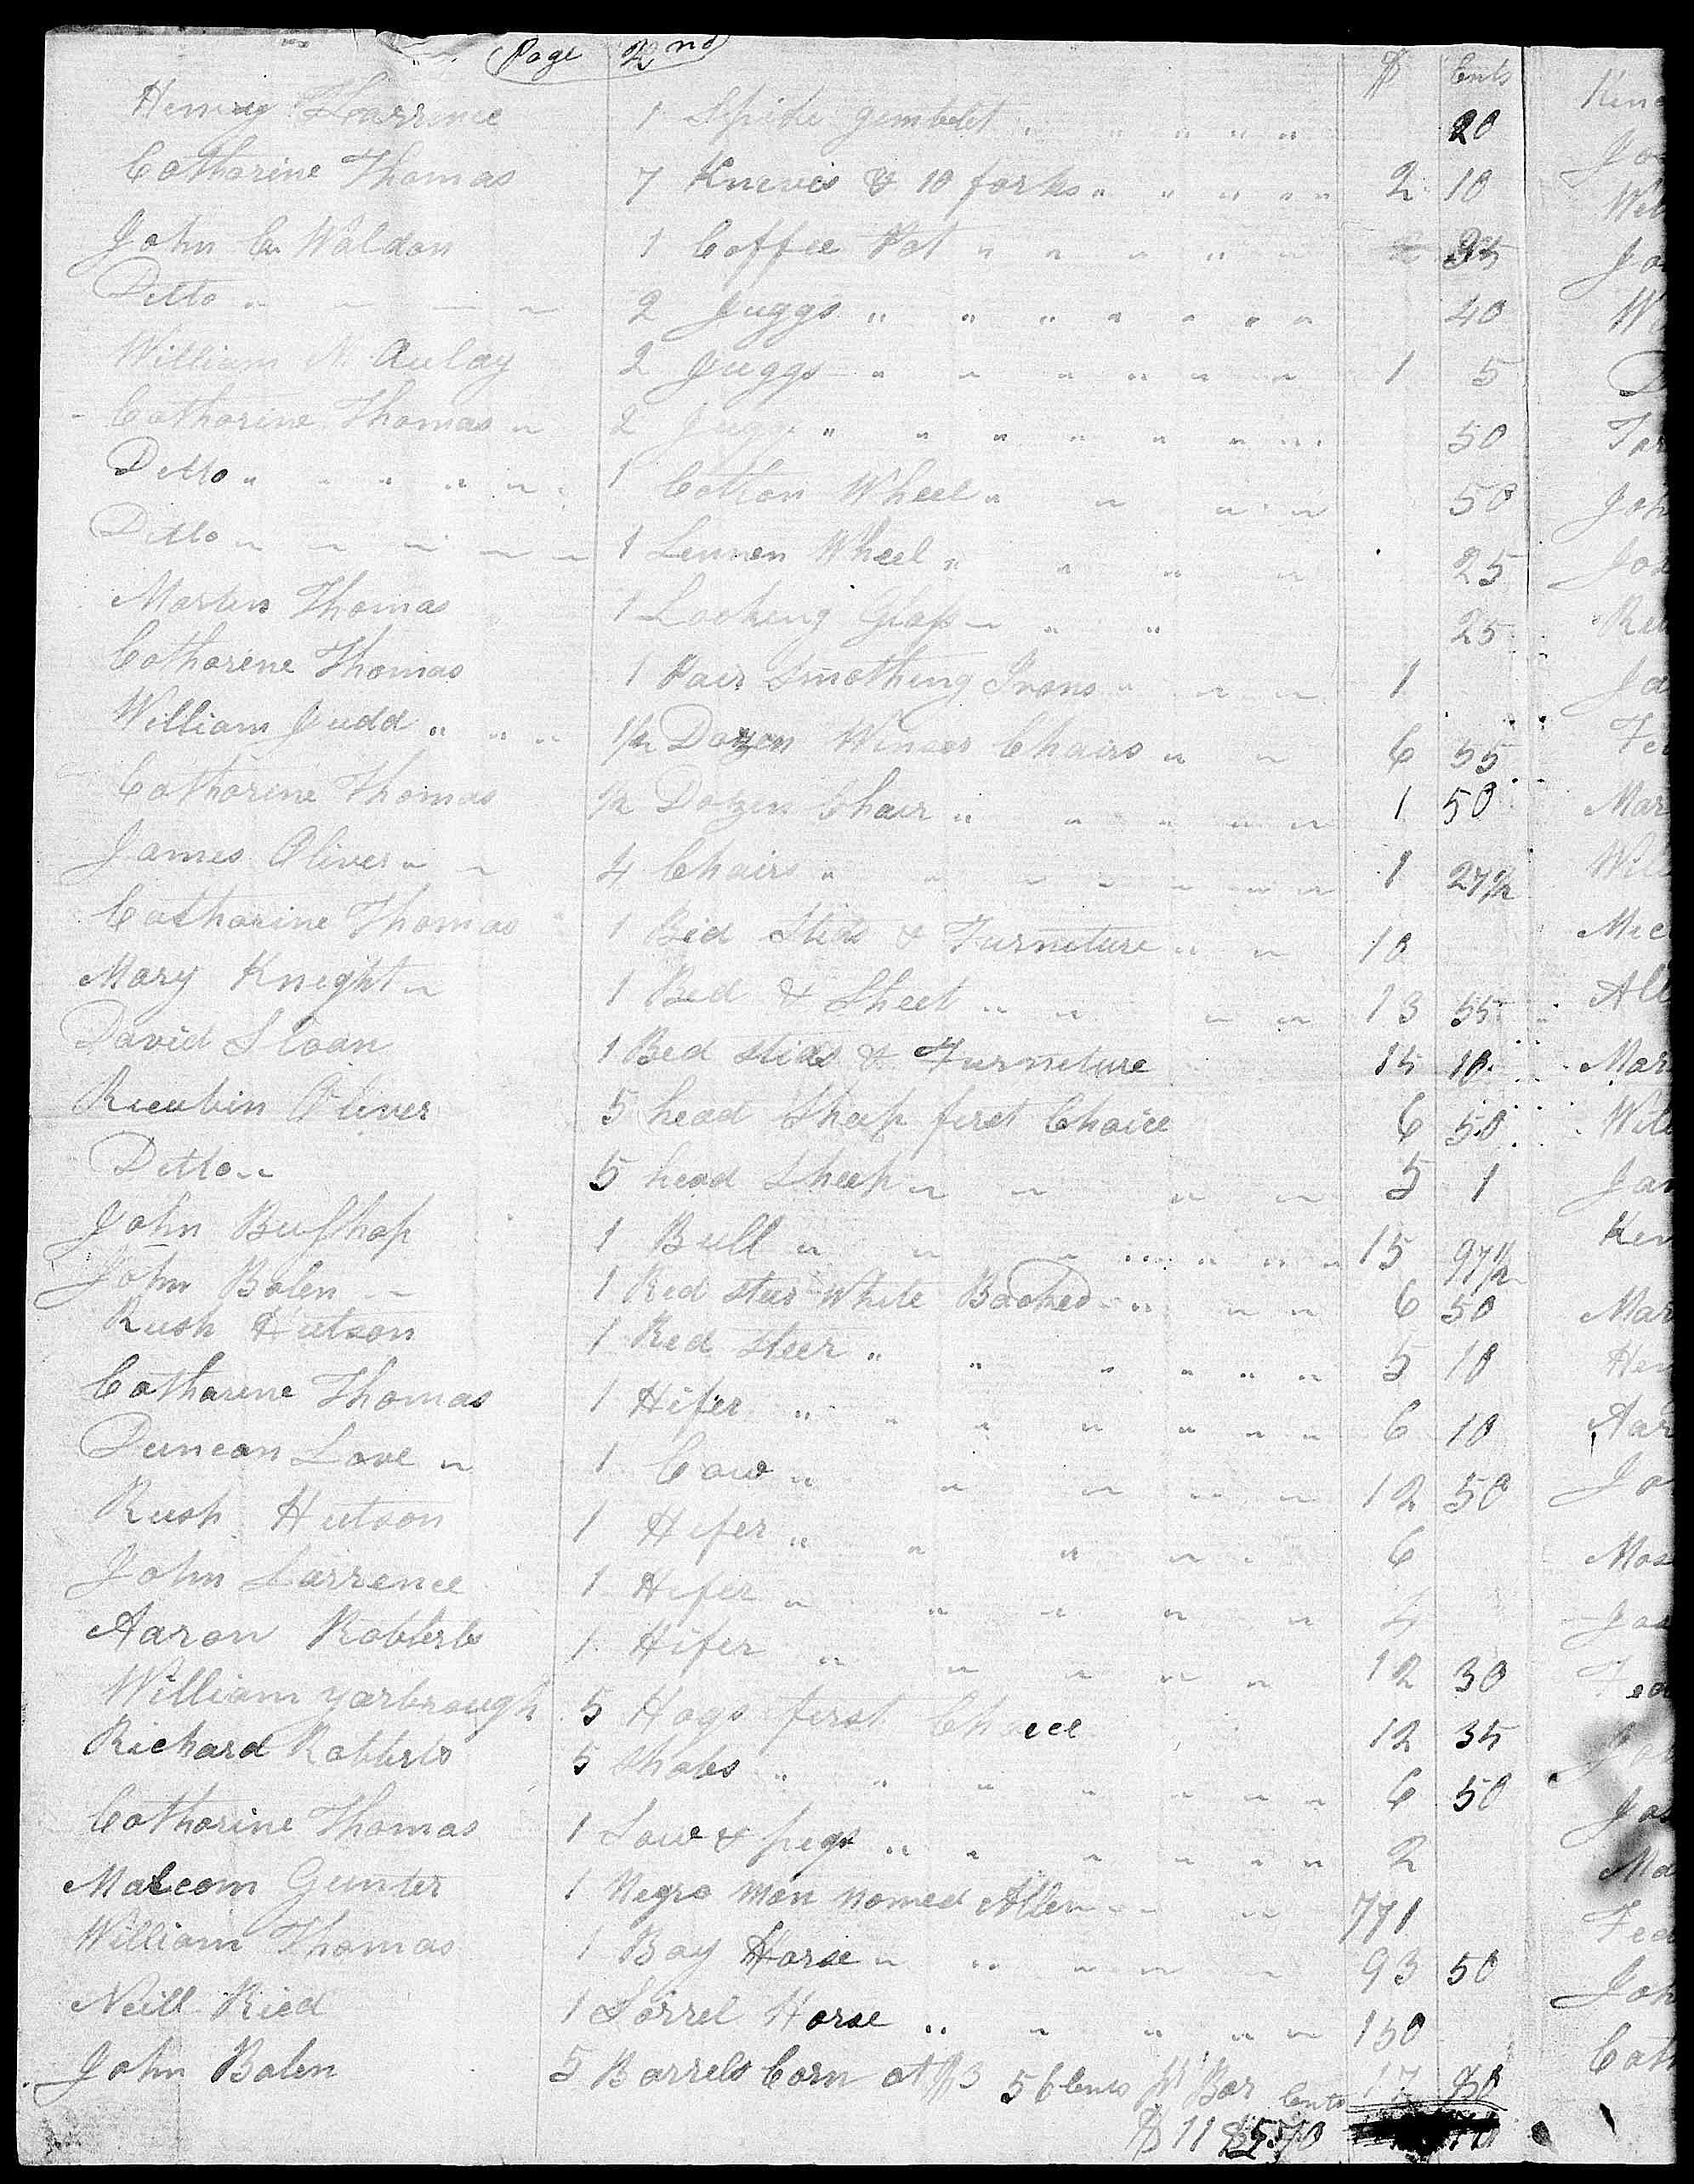 Page 2nd
$ Cents
Henry Larrence 1 Spike gimblet " " " " " 20
Catharine Thomas 7 Knives & 10 forks " " " " " 2 10
John C. Waldon 1 Coffee Pot " " " " " 35
Ditto " " " " 2 Juggs " " " " " " " 40
William M. Aulay 2 Juggs " " " " " " 1 5
Catharine Thomas " 2 Juggs " " " " " " " 50
Ditto " " " " " 1 Cotton Wheel " " " " 50
Ditto " " " " " 1 Lennen Wheel " " " " 25
Martin Thomas 1 Looking Glass " " " 25
Catharine Thomas 1 Pair Smothing Irons " " " 1
William Judd " " " 1/2 Dozen Winser Chairs " " 6 55
Catharine Thomas 1/2 Dozen Chair " " " " " 1 50
James Oliver " " 4 Chairs " " " " " " " 1 27 1/2
Catharine Thomas 1 Bed Stids & Furneture " " 10
Mary Kneght " 1 Bed & Sheet " " " " 13 55
David Sloan 1 Bed stids & Furneture 15 10
Rieubin Oliver 5 head Sheep first Choice 6 50
Ditto " " 5 head Sheep " " " " 5 1
John Bushop 1 Bull " " " " " " " 15 97 1/2
John Bolen " " 1 Red steer White Backed " " " " 6 50
Rush Hutson 1 Red steer " " " " " " 5 10
Catharine Thomas 1 Hifer " " " " " " " 6 10
Duncan Love " 1 Cow " " " " " 12 50
Rush Hutson 1 Hifer " " " " 6
John Larrence 1 Hifer " " " " " 4
Aaron Robberts 1 Hifer " " " " " 12 30
William yarbrough 5 Hogs first Choice 12 35
Richard Robberts 5 Shoats " " " " " " " 6 50
Catharine Thomas 1 Sow & pegs " " " " " " 2
Malcom Gunter 1 Negro Man Named Allen " " " 771
William Thomas 1 Bay Horse " " " " " 93 50
Neill Ried 1 Sorrel Horse " " " " " 150
John Bolen 5 Barrels Corn at $3 56 Cents pr Bar 17 80
Cents
$ 11